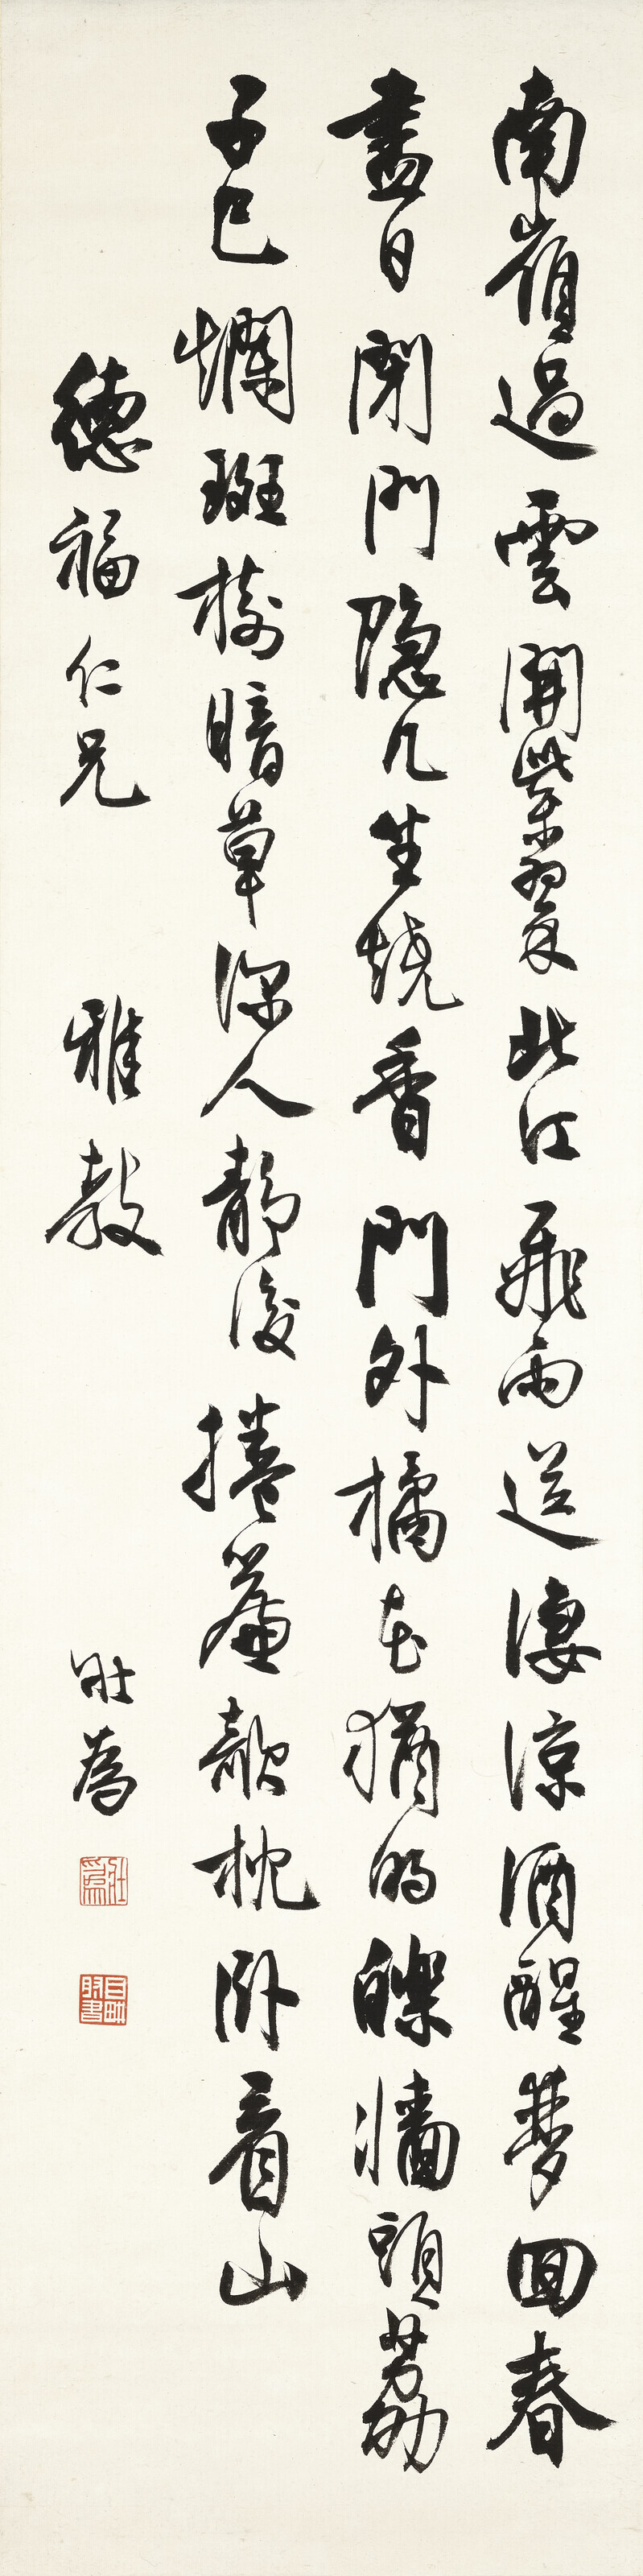 南嶺過雲開紫翠北江飛雨送淒涼酒醒夢回春
盡日閉門隱几坐燒香門外橘花猶的皪牆頭荔
子已斕斑樹暗草深人靜後捲簾欹枕臥看山
德福仁兄 雅教 壯為